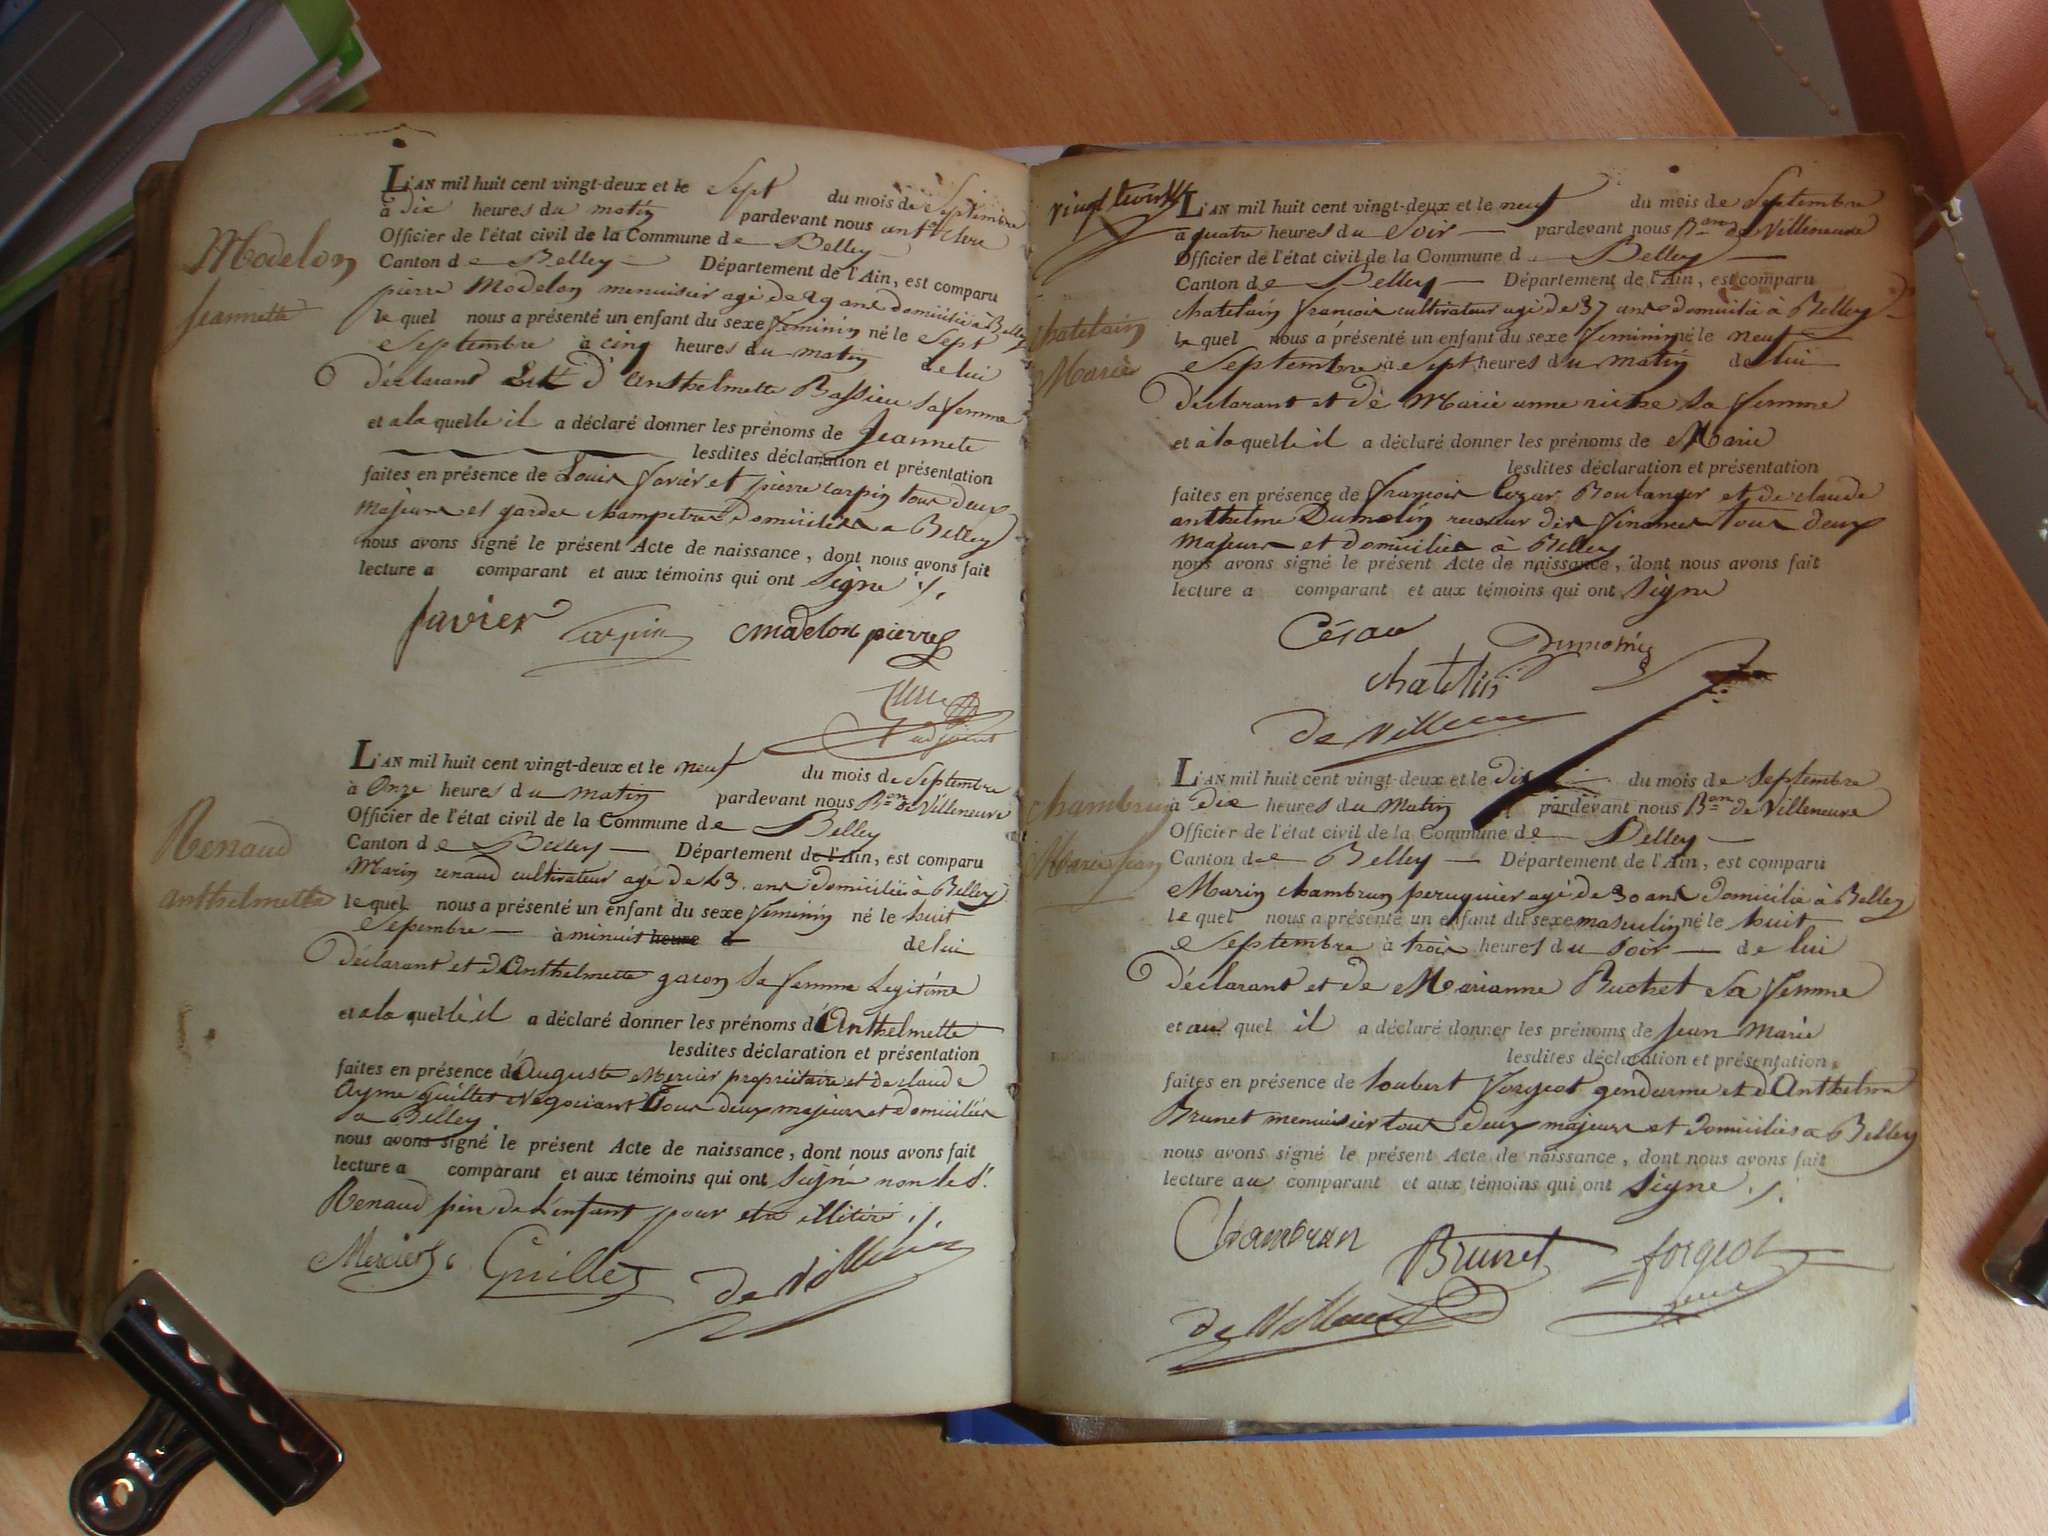 Modelon
Jeannette
L'AN mil huit cent vingt-deux et le Sept du mois de Septembre
à dix heures du matin pardevant nous ant. Clerc
Officier de l'état civil de la Commune de Belley
Canton de Belley Département de l'Ain, est comparu
pierre Modelon menuisier agé de 29 ans domicilié à Belley
le quel nous a présenté un enfant du sexe feminin né le Sept
Septembre à cinq heures du matin de lui
déclarant et d'Anthelmette Bassieu sa femme
et a la quelle il a déclaré donner les prénoms de Jeannete
lesdites déclaration et présentation
faites en présence de Louis favier et pierre carpin tous deux
Majeurs et gardes champetres domiciliés a Belley
nous avons signé le présent Acte de naissance, dont nous avons fait
lecture a comparant et aux témoins qui ont Signé ./.
favier Carpin Madelon pierre
Clerc
adjoint
Renaud
anthelmette
L'AN mil huit cent vingt-deux et le neuf du mois de Septembre
à Onze heures du matin pardevant nous Bon de Villeneuve
Officier de l'état civil de la Commune de Belley
Canton de Belley Département de l'Ain, est comparu
Marin renaud cultivateur agé de 43 ans domicilié à Belley
le quel nous a présenté un enfant du sexe feminin né le huit
Sepembre à minuit heure d de lui
déclarant et d'Anthelmette gacon sa femme Legitime
et a la quelle il a déclaré donner les prénoms d'Anthelmette
lesdites déclaration et présentation
faites en présence d'Auguste Mercier propriétaire et de claude
Ayme Guillet Negociant Tous deux majeurs et domiciliés
a Belley
nous avons signé le présent Acte de naissance, dont nous avons fait
lecture a comparant et aux témoins qui ont Signé non le Sr.
Renaud père de L'enfant pour etre illitéré ./.
Mercier Guillet de Villeneuve
vingt trois
chatelain
Marie
L'AN mil huit cent vingt-deux et le neuf du mois de Septembre
a quatre heures du Soir pardevant nous Bon de Villeneuve
Officier de l'état civil de la Commune de Belley
Canton de Belley Département de l'Ain, est comparu
chatelain françois cultivateur agé de 37 ans domicilié à Belley
le quel nous a présenté un enfant du sexe feminin né le neuf
Septembre a sept heures du matin de lui
déclarant et de Marie anne sa femme
et à la quelle il a déclaré donner les prénoms de Marie
lesdites déclaration et présentation
faites en présence de françois Boulanger et de claude
anthelme Dumolin receveur des finances tous deux
majeurs et domiciliés à Belley
nous avons signé le présent Acte de naissance, dont nous avons fait
lecture a comparant et aux témoins qui ont Signé
César
chatelin
de Villeneuve
chambrun
Marie Jean
L'AN mil huit cent vingt-deux et le Dix du mois de Septembre
à dix heures du Matin pardevant nous Bon de Villeneuve
Officier de l'état civil de la Commune de Belley
Canton de Belley Département de l'Ain, est comparu
Marin chambrun peruquier agé de 30 ans domicilié à Belley
le quel nous a présenté un enfant du sexe masculin né le huit
Septembre à trois heures du Soir de lui
déclarant et de Marianne Buchet sa femme
et au quel il a déclaré donner les prénoms de Jean Marie
lesdites déclaration et présentation
faites en présence de loubert forgeot gendarme et d'Anthelme
Brunet menuisier tous deux majeurs et domiciliés a Belley
nous avons signé le présent Acte de naissance, dont nous avons fait
lecture au comparant et aux témoins qui ont Signé ./.
Chambrun Brunet forgeot
de Villeneuve